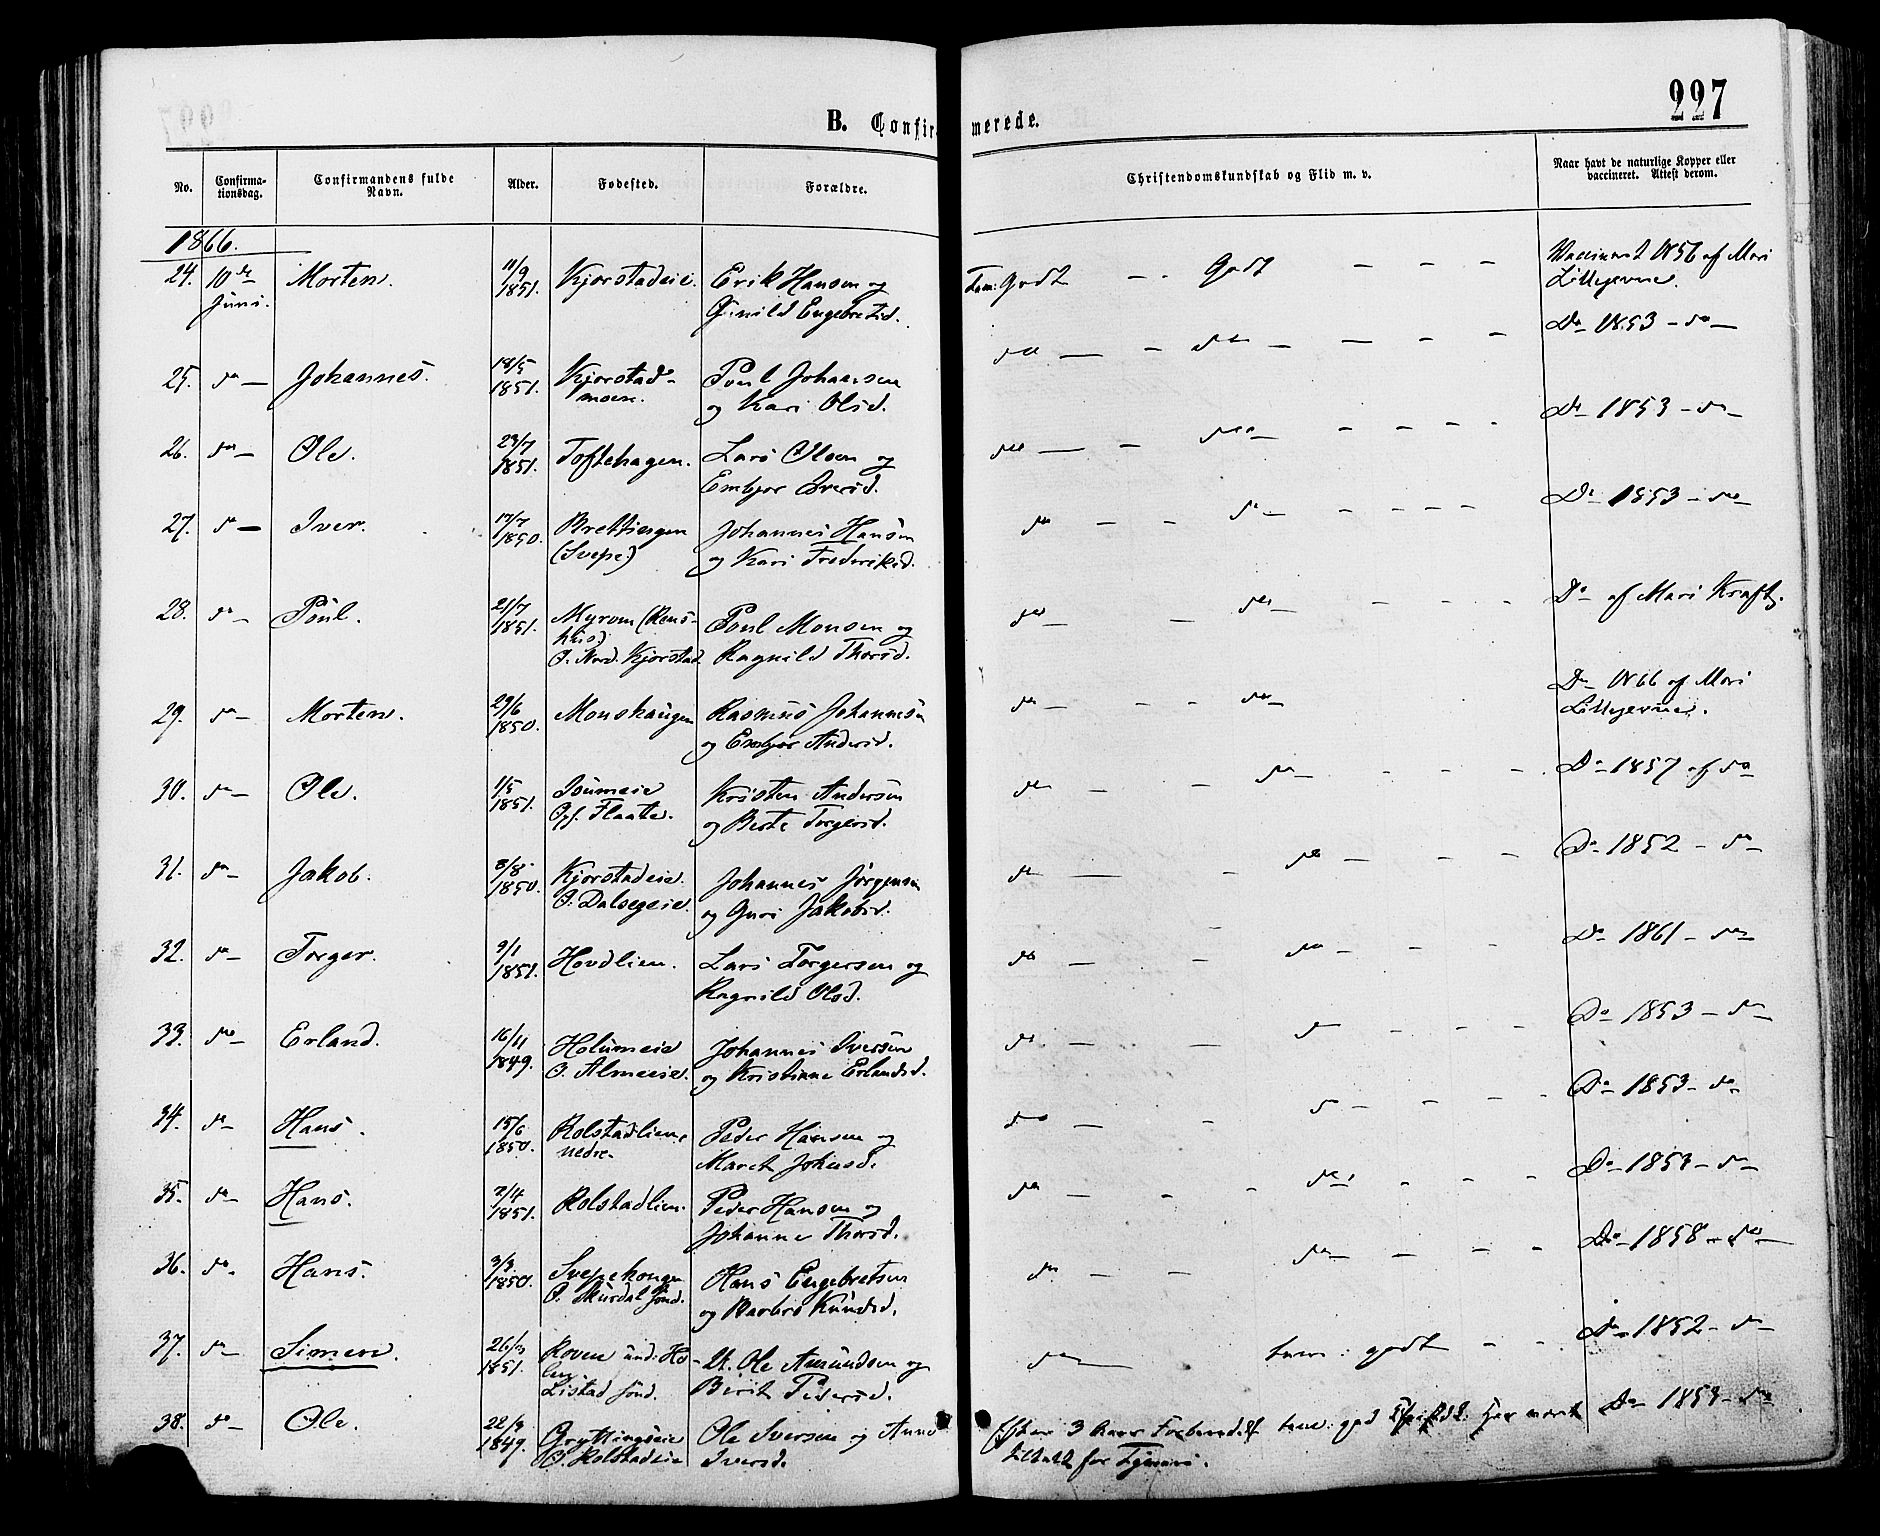 227
B. Confirmerede.
No.
Confirmationsdag.
Confirmandens fulde Navn.
Alder.
Fødested.
Forældre.
Christendomskundskab og Flid m. v.
Naar havt de naturlige Kopper eller vaccineret. Attest derom.
1866.
24. 10de Juni. Morten. 11/9 1851. Kjorstadeie. Erik Hansen og
Gunild Engebretsd.
Tem: Godt — Godt — — — Vaccineret 1856 af Mari
Lillegevne.
25. do — Johannes. 18/5 1851. Kjorstad- Poul Johansen
moen. og Kari Olsd.
do — — do — — — — Do 1853 — do —
26. do — Ole. 23/7 1851. Toftehagen. Lars Olsen og
Embjor Iversd.
do — — do — — — — — Do 1853 — do —
27. do — Iver. 17/7 1850. Brettingen Johannes Hansen
(Svepe) og Kari Frederiksd.
do — — do — — — — — Do 1853 — do
28. do — Poul. 21/7 1851. Myrom (Rens- Poul Monsen og
hus)
O. Nord. Kjorstad Ragnild Thorsd.
do — — do — — — — Do af Mari Kraft.
29. do — Morten. 29/6 1850. Monshaugen Rasmus Johannesen
og Embjor Andersd.
do — — — do — Do 1866 af Mari
Lillegevne.
30. do — Ole. 1/5 1851. Isumeie Kristen Andersen
Opf. Flaate. og Berte Torgersd.
do — — do — — — — Do 1857 af do
31. do — Jakob. 8/8 1850. Kjorstadeie. Johannes Jørgensen
O. Dalsegeie. og Guri Jakobsd.
do — — do — — — Do 1852 — do —
32. do — Torger. 9/1 1851. Hovdlien. Lars Torgersen og
Ragnild Olsd.
do — — do — — — Do 1861 — do —
33. do — Erland. 16/11 1849. Holumeie Johannes Iversen
O. Almeeie. og Kristianne Erlandsd.
do — — do — — — Do 1853 — do —
34. do — Hans. 15/6 1850. Rolstadlien, Peder Hansen og
nedre. Marit Johnsd.
do — — do — — — — Do 1853 — do
35. do — Hans. 2/4 1851. Rolstadlien. Peder Hansen og
Johanne Thorsd.
do — — — do — — — Do 1853 — do —
36. do — Hans. 3/3 1850. Svepehougen Hans Engebretsen
O. Murdal sönd. og Barbro Knudsd.
do — — do — — — Do 1858 — do —
37. do — Simen. 26/3 1851. Roven und: Ho- U. Ole Amundsen og
len
Listad sönd. Berit Pedersd.
do — tem: godt — — Do 1852 — do —
38. do — Ole. 22/3 1849. Gryttingseie Ole Iversen og Anne
O. Rolstadeie Iversd.
Efter 3 Aars Forbered. tem: god Har været
for Do 1853 — do